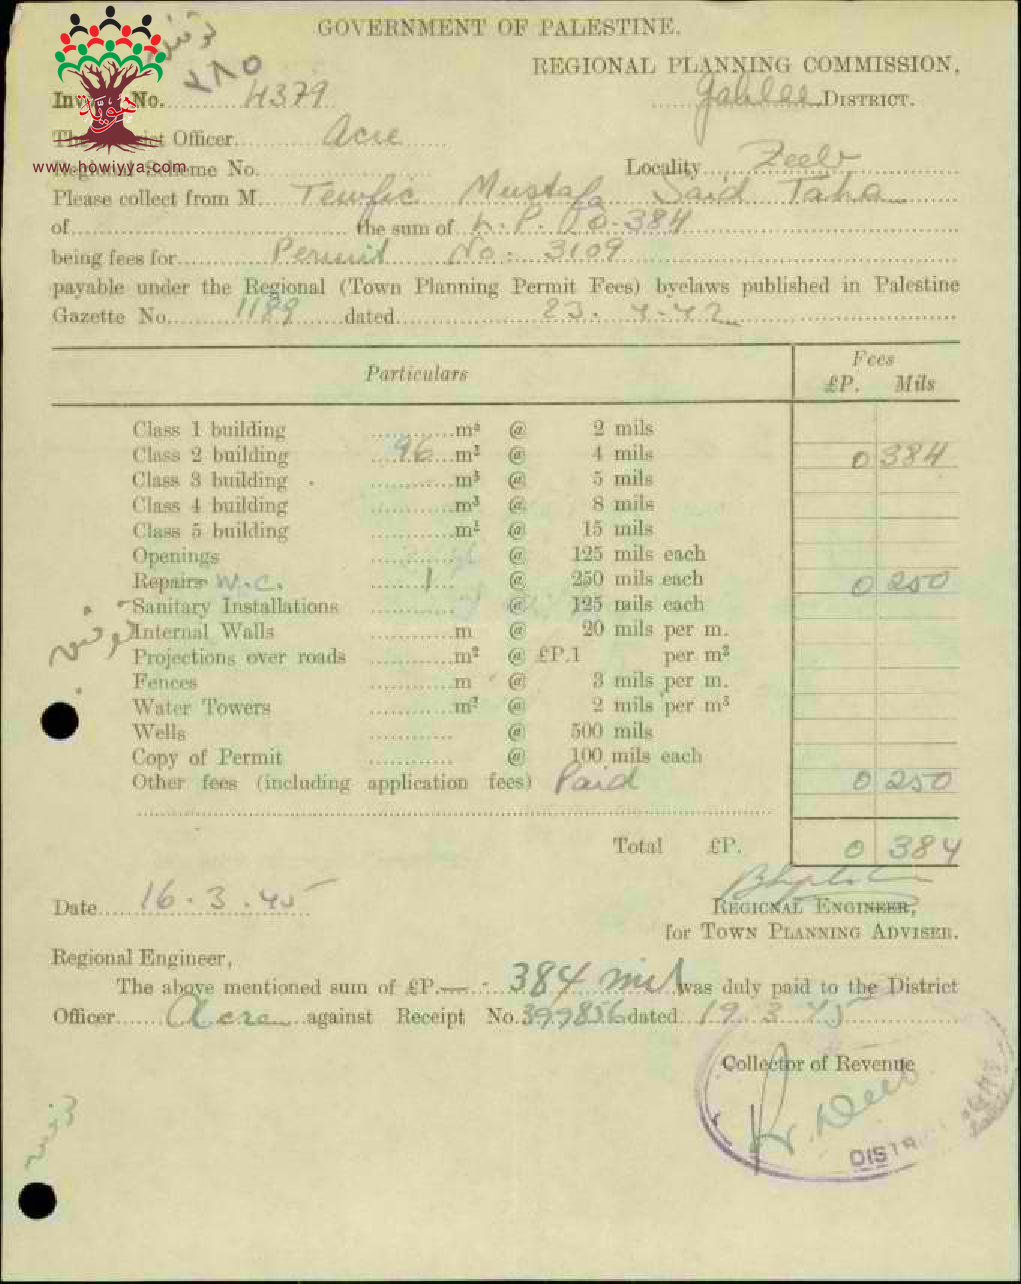 GOVERNMENT OF PALESTINE.
REGIONAL PLANNING COMMISSION,
٧٨٥
هوية
www.howiyya.com
Invoice No. 4379
Galilee DISTRICT.
The District Officer Acre
Regional Scheme No.
Locality Zeeb
Please collect from M. Tewfic Mustafa Said Taha
of the sum of L.P. 0.384
being fees for Permit No. 3109
payable under the Regional (Town Planning Permit Fees) byelaws published in Palestine
Gazette No. 1189 dated 23.4.42
Particulars Fees
£P. Mils
Class 1 building m³ @ 2 mils
Class 2 building 96 m³ @ 4 mils 0 384
Class 3 building m³ @ 5 mils
Class 4 building m³ @ 8 mils
Class 5 building m³ @ 15 mils
Openings @ 125 mils each
Repairs W.C. 1 @ 250 mils each 0 250
Sanitary Installations @ 125 mils each
Internal Walls m @ 20 mils per m.
Projections over roads m² @ £P.1 per m²
Fences m @ 3 mils per m.
Water Towers m³ @ 2 mils per m³
Wells @ 500 mils
Copy of Permit @ 100 mils each
Other fees (including application fees) Paid 0 250
Total £P. 0 384
Date 16.3.45
REGIONAL ENGINEER,
for TOWN PLANNING ADVISER.
Regional Engineer,
The above mentioned sum of £P. 384 mils was duly paid to the District
Officer Acre against Receipt No. 399856 dated 19.3.45
Collector of Revenue
DISTR